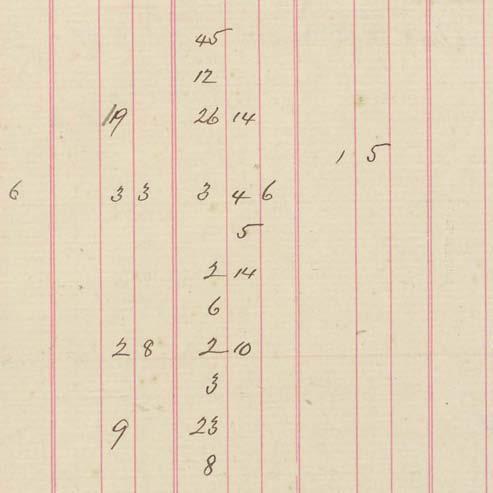 45
12
19 26 14
1 5
6 3 3 3 4 6
5
2 14
6
2 8 2 10
3
9 23
8